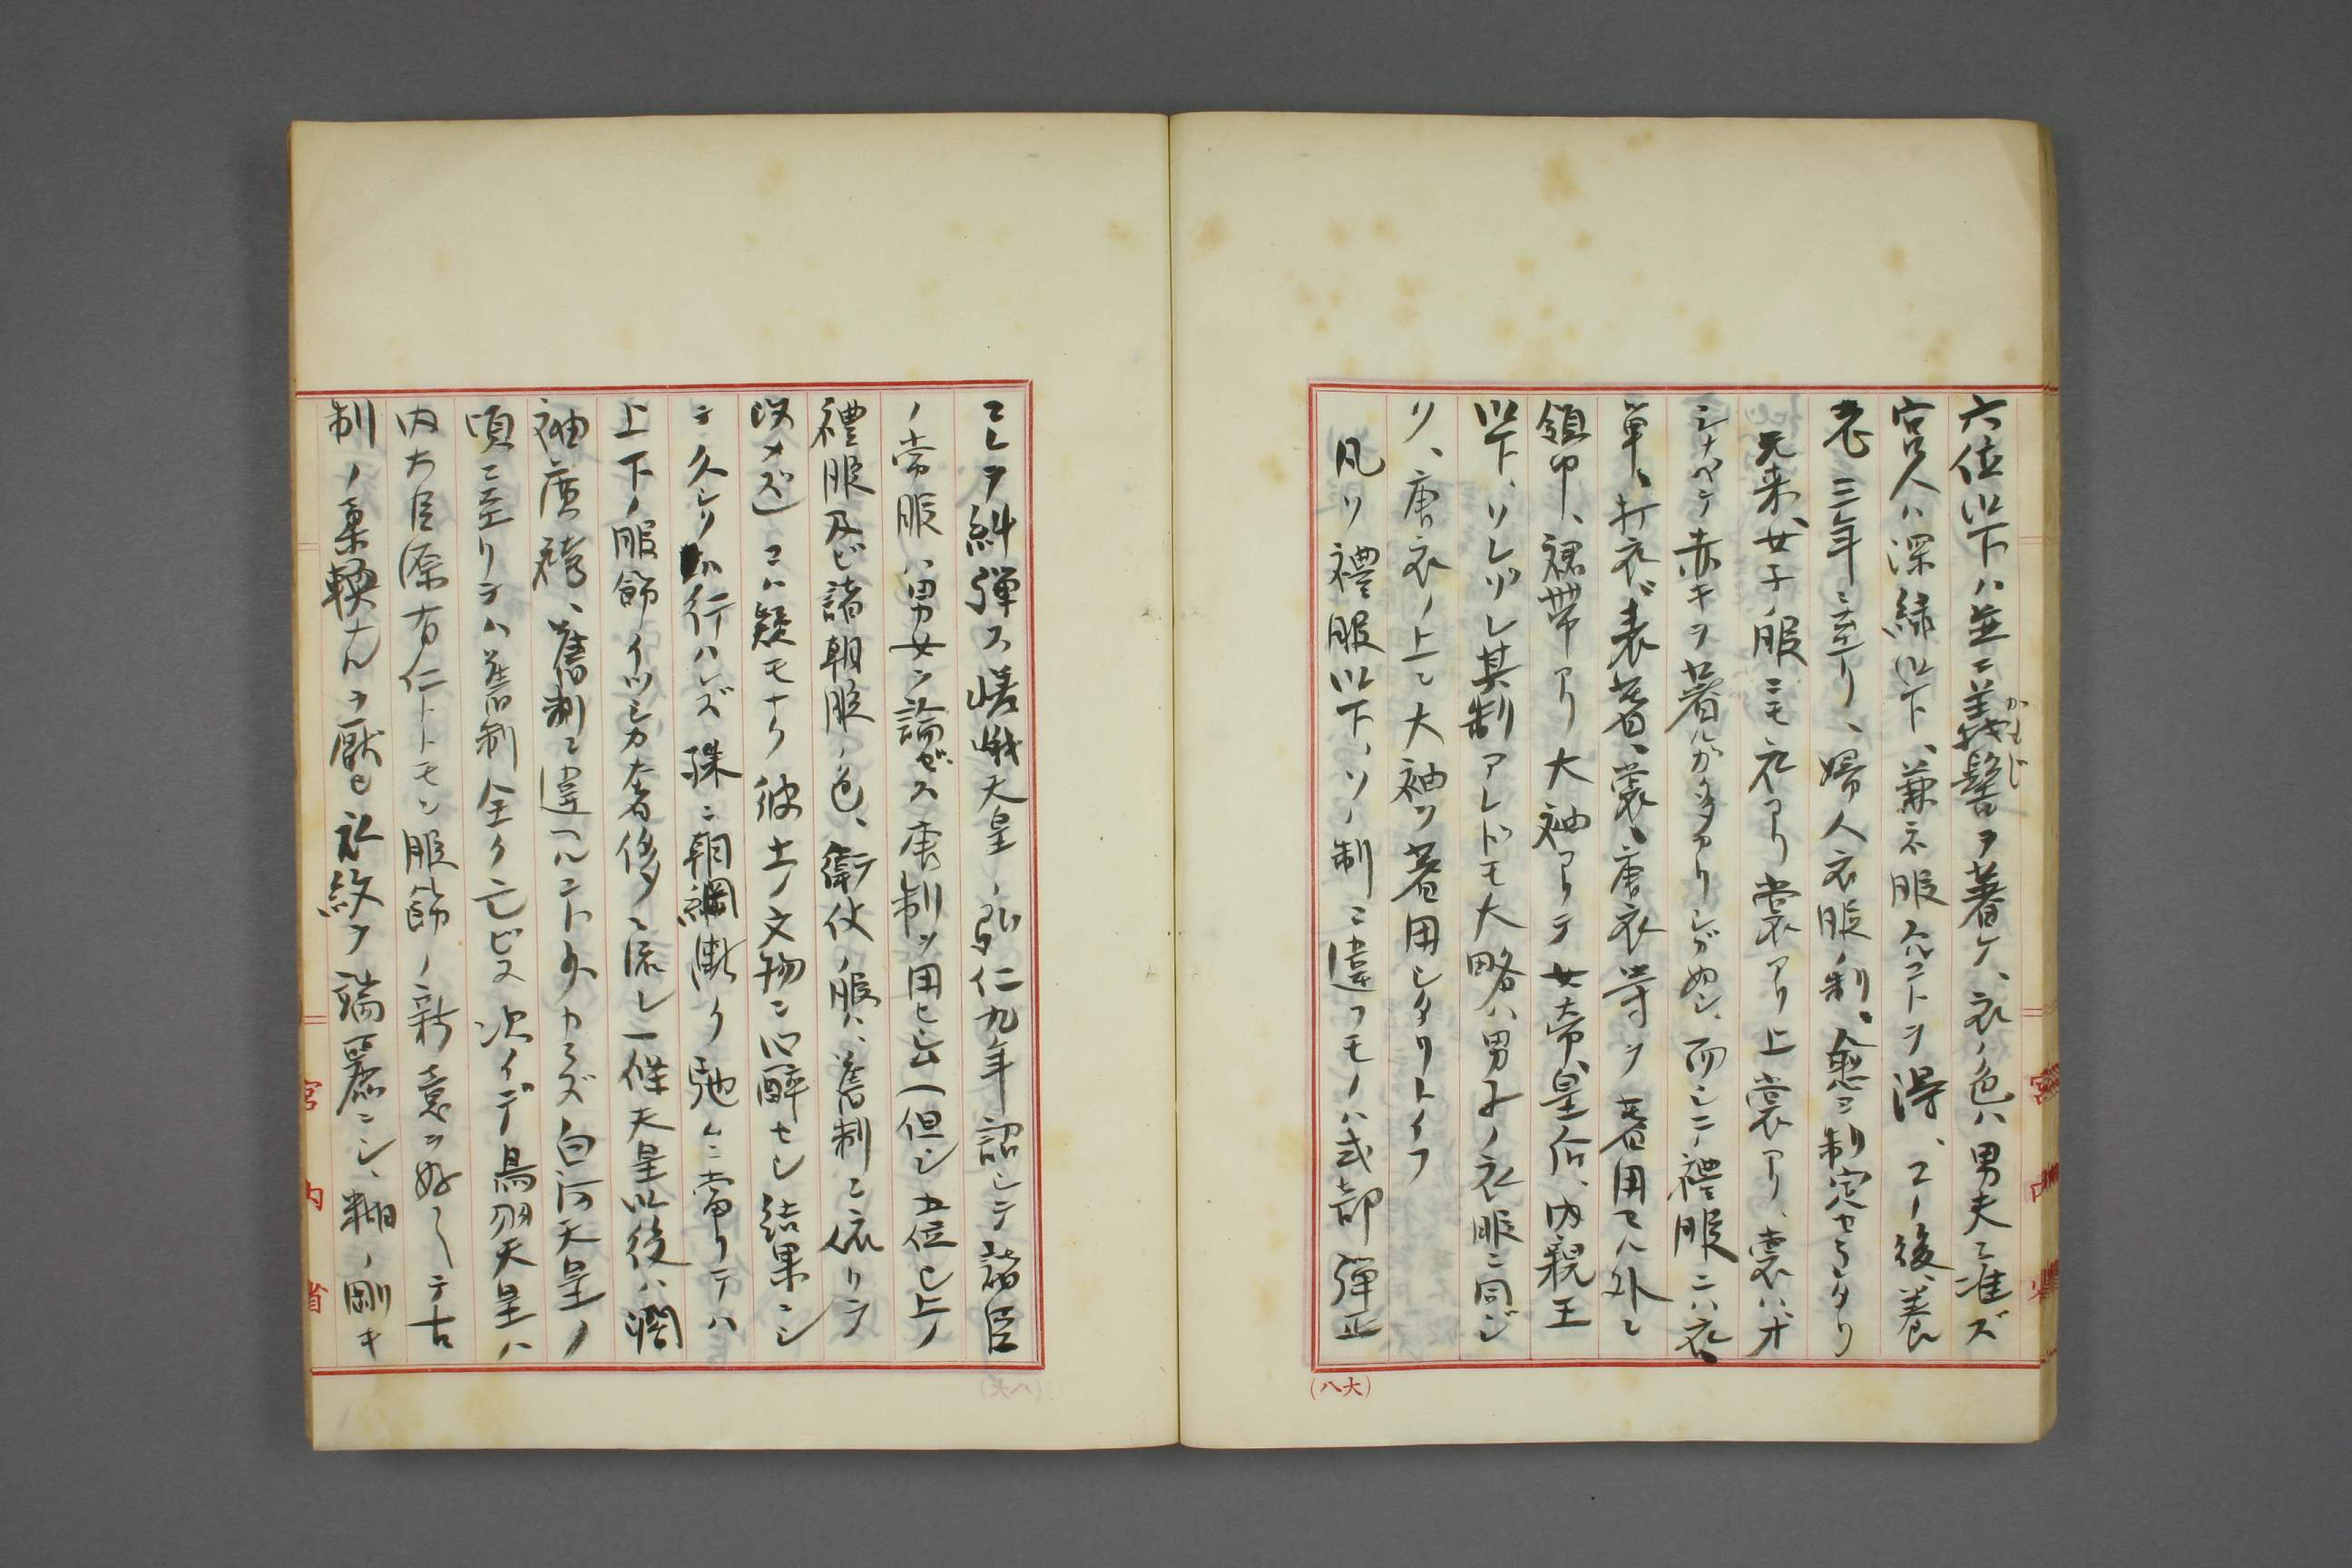 六位以下ハ並ニ義髻ヲ著ケ、衣ノ色ハ男夫ニ准ズ
かもじ
宮人ハ深緑以下、兼ネ服スルコトヲ得、コノ後、養
老三年ニ至リ、婦人衣服ノ制、愈ヨ制定セラレタリ
元来、女子ノ服ニモ衣アリ裳アリ上裳アリ、裳ハオ
シナベテ赤キヲ著ルガ多カリシガ如シ、而シテ禮服ニハ衣、
単、打衣、表著、裳、唐衣等ヲ著用スル外ニ
領巾、裙帯アリ大袖アリテ女帝、皇后、内親王
以下、ソレゾレ其制アレドモ大略ハ男子ノ衣服ニ同ジ
リ、唐衣ノ上ニ大袖ヲ著用シタリトイフ
凡ソ禮服以下、ソノ制ニ違フモノハ式部弾正
(大八)
コレヲ糾弾ス嵯峨天皇ノ弘仁九年詔シテ諸臣
ノ常服ハ男女ヲ論ゼズ唐制ヲ用ヒ(但シ五位已上ノ
禮服及ビ諸朝服ノ色、衛仗ノ服ハ、舊制ニ依リテ
改メズ)コハ疑モナク彼土ノ文物ニ心酔セシ結果ニシ
テ久シク行ハレズ殊ニ朝綱漸ク弛ムニ當リテハ
上下ノ服飾イツシカ奢侈ニ流レ一條天皇以後ハ濶
袖廣袴、舊制ニ違ヘルコト少カラズ白河天皇ノ
頃ニ至リテハ舊制全ク亡ビス次イデ鳥羽天皇ハ
内大臣源有仁トトモニ服飾ノ新意ヲ好ミテ古
制ノ柔輭ナルヲ厭ヒ衣紋ヲ端麗ニシ、糊ノ剛キ
宮内省